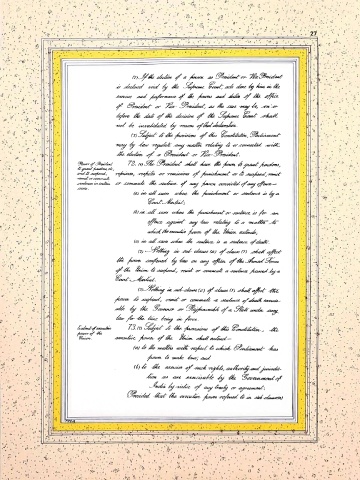 27
(2). If the election of a person as President or Vice-President
is declared void by the Supreme Court, acts done by him in the
exercise and performance of the powers and duties of the office
of President or Vice-President, as the case may be, on or
before the date of the decision of the Supreme Court shall
not be invalidated by reason of that declaration.
(3). Subject to the provisions of this Constitution, Parliament
may by law regulate any matter relating to or connected with
the election of a President or Vice-President.
Power of President
to grant pardons, etc.,
and to suspend,
remit or commute
sentences in certain
cases.
72. (1). The President shall have the power to grant pardons,
reprieves, respites or remissions of punishment or to suspend, remit
or commute the sentence of any person convicted of any offence—
(a) in all cases where the punishment or sentence is by a
Court Martial;
(b) in all cases where the punishment or sentence is for an
offence against any law relating to a matter to
which the executive power of the Union extends;
(c) in all cases where the sentence is a sentence of death.
(2).—Nothing in sub-clause (a) of clause (1) shall affect
the power conferred by law on any officer of the Armed Forces
of the Union to suspend, remit or commute a sentence passed by a
Court-Martial.
(3). Nothing in sub-clause (c) of clause (1) shall affect the
power to suspend, remit or commute a sentence of death exercis-
able by the Governor or Rajpramukh of a State under any
law for the time being in force.
Extent of executive
power of the
Union.
73. (1) Subject to the provisions of this Constitution, the
executive power of the Union shall extend—
(a) to the matters with respect to which Parliament has
power to make laws; and
(b) to the exercise of such rights, authority and jurisdic-
tion as are exercisable by the Government of
India by virtue of any treaty or agreement:
Provided that the executive power referred to in sub-clause (a)